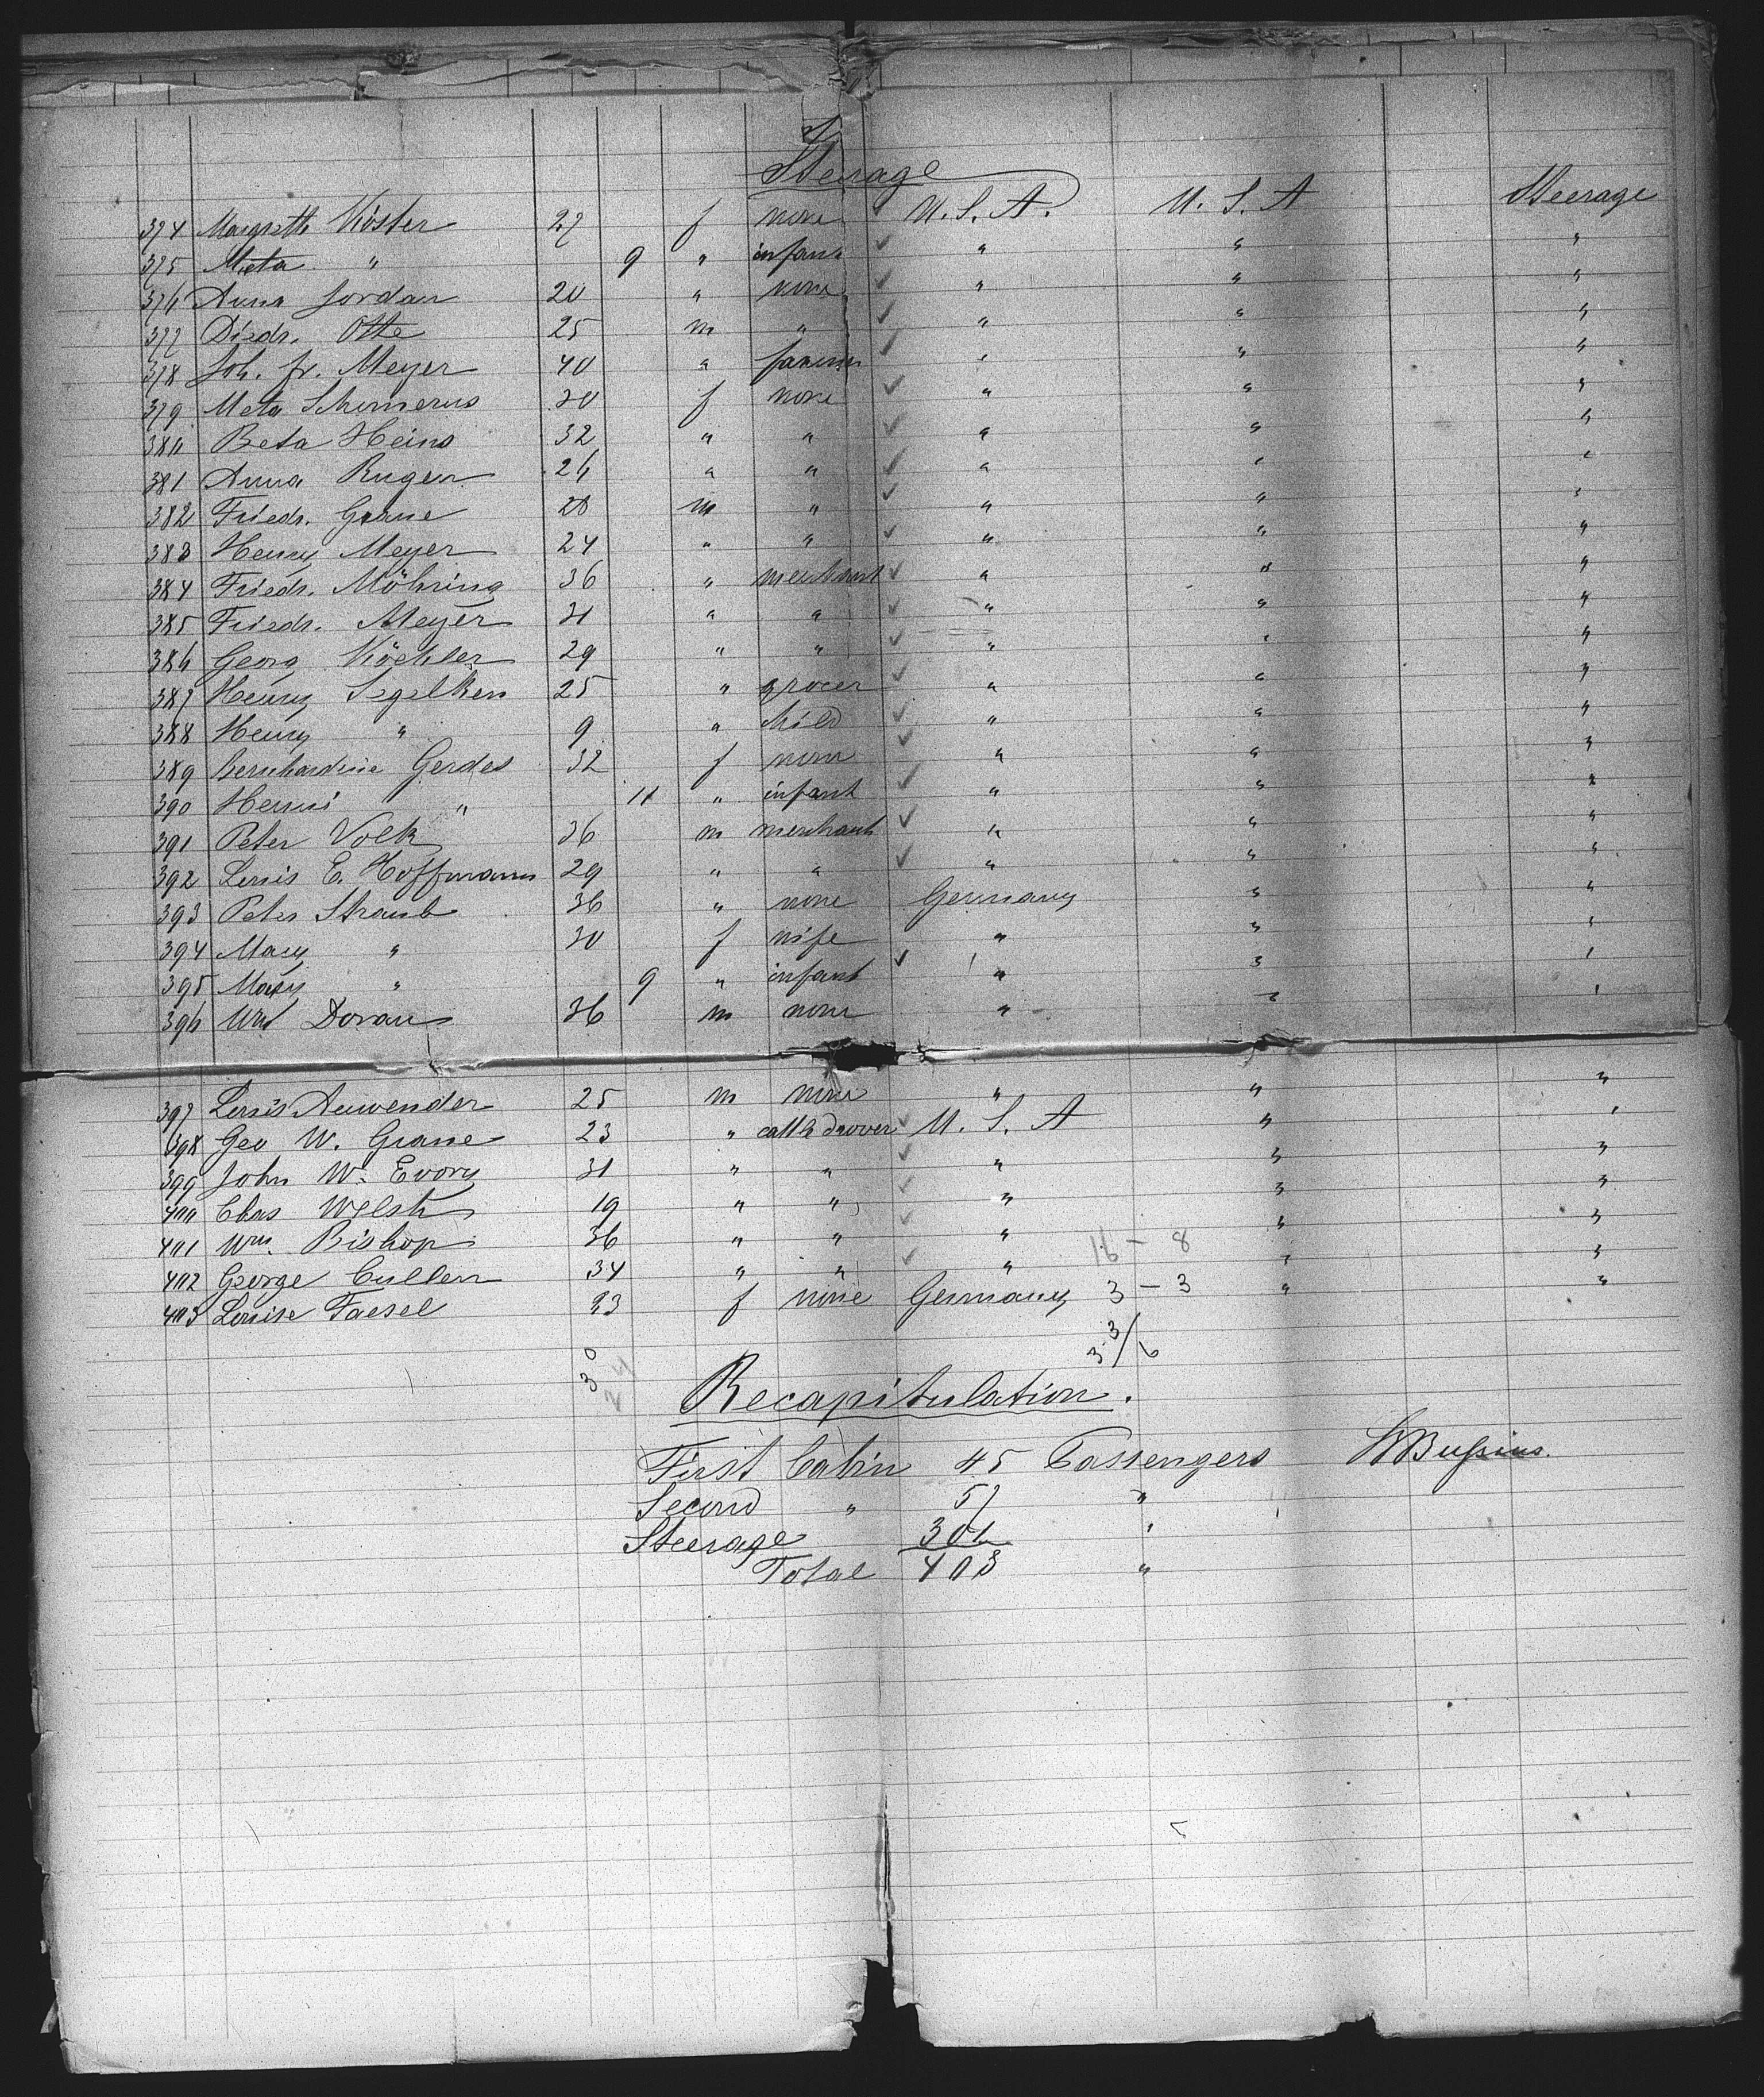 Steerage
374 Margreth Köster 27 f none U.S.A. U.S.A Steerage
375 Meta " 9 " infant " " "
376 Anna Jordan 20 " none " " "
377 Diedr. Otte 25 m " " " "
378 Joh. Fr. Meyer 40 " farmer " " "
379 Meta Schmerus 20 f none " " "
380 Beta Heins 32 " " " " "
381 Anna Rugen 26 " " " " "
382 Friedr. Grane 28 m " " " "
383 Henry Meyer 24 " " " " "
384 Friedr. Möhring 36 " merchant " " "
385 Friedr. Meyer 31 " " " " "
386 Georg Köchler 29 " " " " "
387 Henry Segelken 25 " grocer " " "
388 Henry " 9 " child " " "
389 Bernhardine Gerdes 32 f none " " "
390 Henni " 11 " infant " " "
391 Peter Volk 36 m merchant " " "
392 Louis E. Hoffmann 29 " " " " "
393 Peter Straub 36 " none Germany " "
394 Mary " 30 f wife " " "
395 Mary " 9 " infant " " "
396 Wm Doran 36 m none " " "
397 Louis Auwender 25 m none " " "
398 Geo W. Grane 23 " cattle drover U.S.A " "
399 John W. Evory 31 " " " " "
400 Chas Welsh 19 " " " " "
401 Wm. Bishop 36 " " " " "
402 George Cullen 34 " " " 16 - 8 " "
403 Louise Faesel 23 f none Germany 3 - 3 " "
3 3/6
30
Recapitulation.
First Cabin 45 Passengers
Second " 57 "
Steerage 301 "
Total 403 "